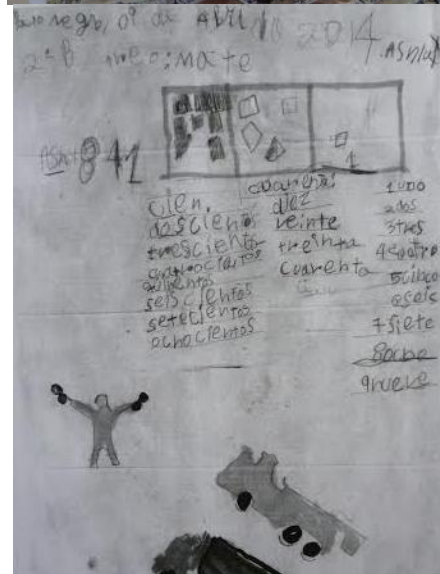 de Abril 2014
2ª B mate
841
1
cien.
doscientos
trescientos
cuatrocientos
seiscientos
setecientos
ochocientos
cuarenta
diez
veinte
treinta
cuarenta
1 uno
2 dos
3 tres
4 cuatro
5 cinco
6 seis
7 siete
8 ocho
9 nueve